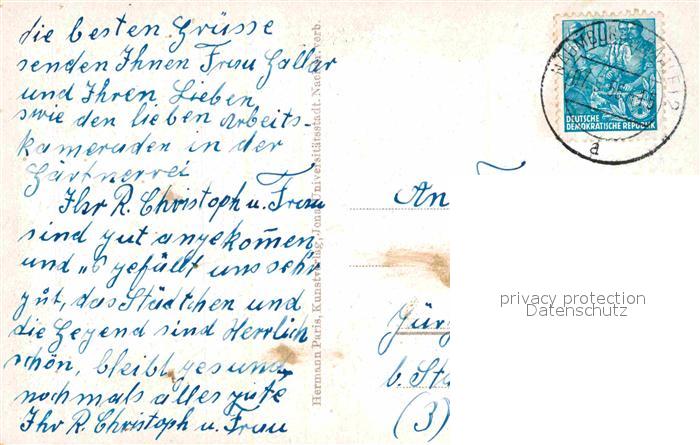 die besten Grüsse
senden Ihnen Frau Gallar
und Ihren Lieben
swie den lieben Arbeits-
kameraden in der
Gärtnerrei
Ihr R. Christoph u. Frau
sind gut angekom̄en
und "s gefällt uns sehr
gut, das Städtchen und
die Gegend sind Herrlich
schön, bleibt gesund
nochmals alles gute
Ihr R. Christoph u. Frau
Hermann Paris, Kunstverlag, Jena, Universitätsstadt. Nachdr. verb.
DEUTSCHE
DEMOKRATISCHE REPUBLIK
NAUMBURG
a
An
Jürg
b. St
(3)
privacy protection
Datenschutz